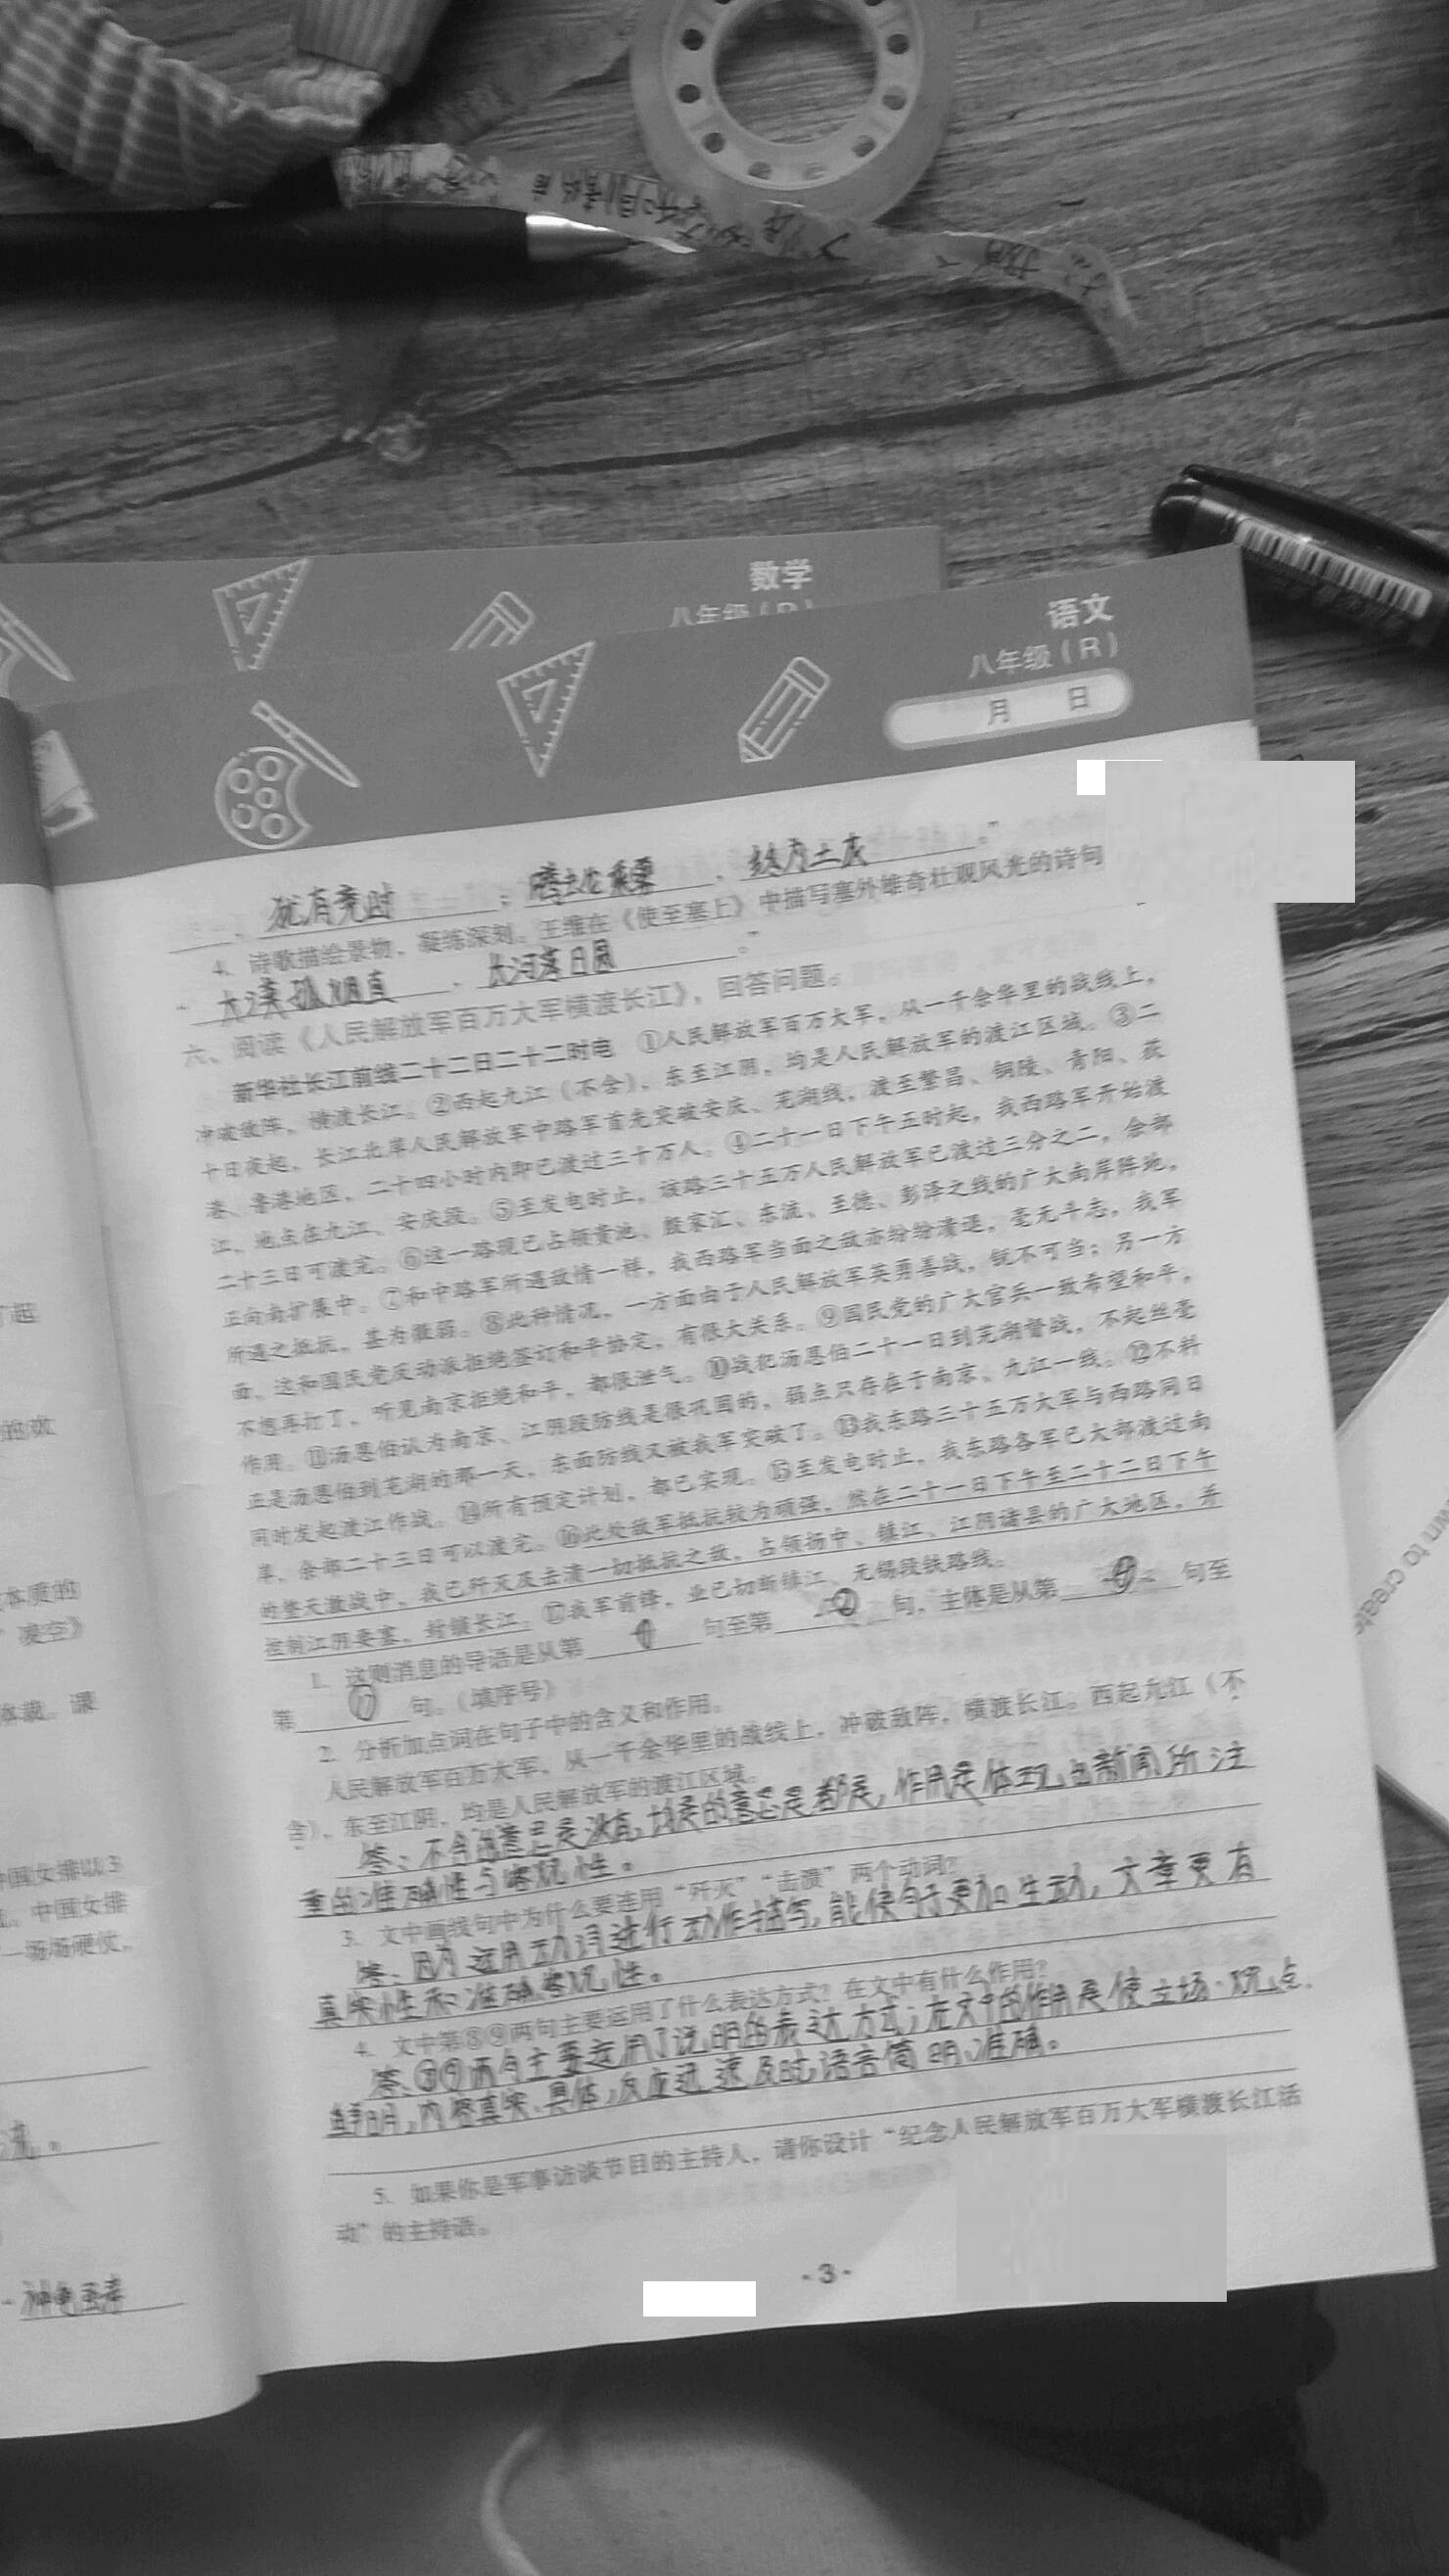 数学
八年级（R）
语文
八年级（R）
月 日
犹有竞时；腾蛇乘雾，终为土灰。”
4. 诗歌描绘景物，凝练深刻。王维在《使至塞上》中描写塞外雄奇壮观风光的诗句
“大漠孤烟直，长河落日圆。”
六、阅读《人民解放军百万大军横渡长江》，回答问题。
新华社长江前线二十二日二十二时电 ①人民解放军百万大军，从一千余华里的战线上，
冲破敌阵，横渡长江。②西起九江（不含），东至江阴，均是人民解放军的渡江区域。③二
十日夜起，长江北岸人民解放军中路军首先突破安庆、芜湖线，渡至繁昌、铜陵、青阳、荻
港、鲁港地区，二十四小时内即已渡过三十万人。④二十一日下午五时起，我西路军开始渡
江，地点在九江、安庆段。⑤至发电时止，该路三十五万人民解放军已渡过三分之二，余部
二十三日可渡完。⑥这一路现已占领贵池、殷家汇、东流、至德、彭泽之线的广大南岸阵地，
正向南扩展中。⑦和中路军所遇敌情一样，我西路军当面之敌亦纷纷溃退，毫无斗志，我军
所遇之抵抗，甚为微弱。⑧此种情况，一方面由于人民解放军英勇善战，锐不可当；另一方
面，这和国民党反动派拒绝签订和平协定，有很大关系。⑨国民党的广大官兵一致希望和平，
不想再打了，听见南京拒绝和平，都很泄气。⑩战犯汤恩伯二十一日到芜湖督战，不起丝毫
作用。⑪汤恩伯认为南京、江阴段防线是很巩固的，弱点只存在于南京、九江一线。⑫不料
正是汤恩伯到芜湖的那一天，东面防线又被我军突破了。⑬我东路三十五万大军与西路同日
同时发起渡江作战。⑭所有预定计划，都已实现。⑮至发电时止，我东路各军已大部渡过南
岸，余部二十三日可以渡完。⑯此处敌军抵抗较为顽强，然在二十一日下午至二十二日下午
的整天激战中，我已歼灭及击溃一切抵抗之敌，占领扬中、镇江、江阴诸县的广大地区，并
控制江阴要塞，封锁长江。⑰我军前锋，业已切断镇江、无锡段铁路线。
1. 这则消息的导语是从第 ① 句至第 ② 句，主体是从第 句至
第 ⑰ 句。（填序号）
2. 分析加点词在句子中的含义和作用。
人民解放军百万大军，从一千余华里的战线上，冲破敌阵，横渡长江。西起九江（不
含），东至江阴，均是人民解放军的渡江区域。
答：不含的意思是没有，均是的意思是都是，作用是体现出新闻所注
重的准确性与客观性。
3. 文中画线句中为什么要连用“歼灭”“击溃”两个动词？
答：因为运用动词进行动作描写，能使句子更加生动，文章更有
真实性和准确客观性。
4. 文中第⑧⑨两句主要运用了什么表达方式？在文中有什么作用？
答：⑧⑨两句主要运用了说明的表达方式；在文中的作用是使立场、观点
鲜明，内容真实、具体，反应迅速及时，语言简明、准确。
5. 如果你是军事访谈节目的主持人，请你设计“纪念人民解放军百万大军横渡长江活
动”的主持语。
- 3 -
本质的
凌空》
体裁。课
中国女排以3
中国女排
一场场硬仗，
神龟虽寿
wn to create